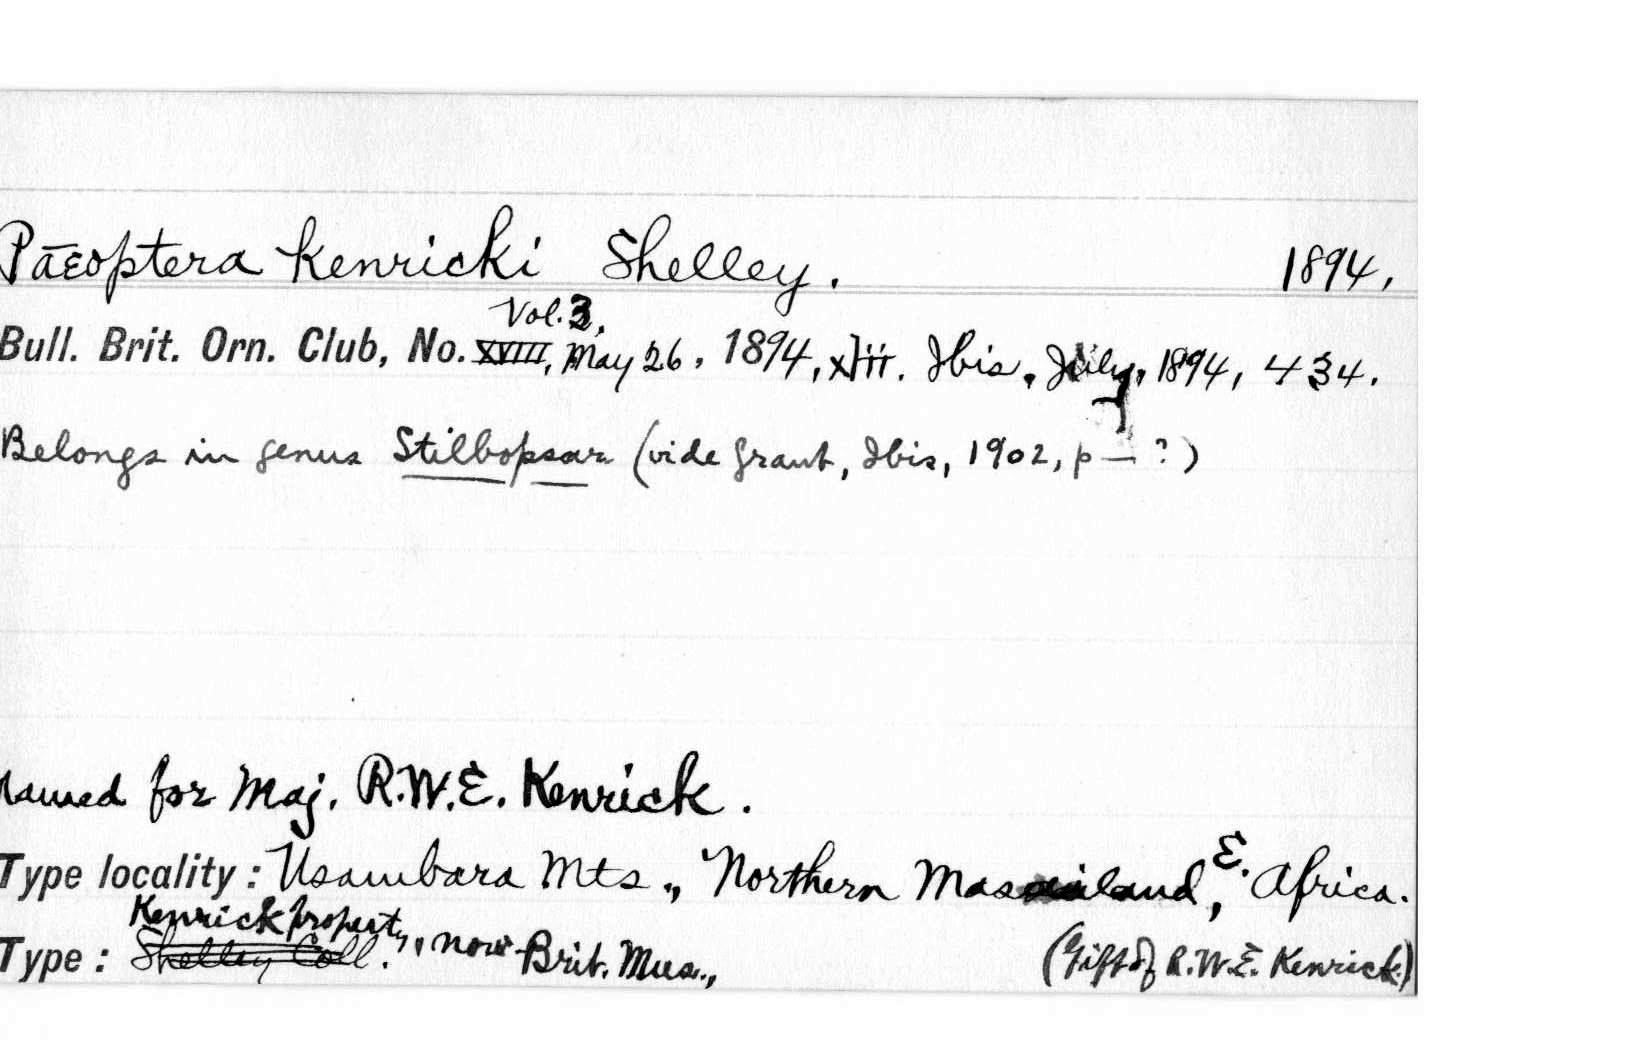 Pæoptera kenricki Shelley. 1894,
Vol. 3,
Bull. Brit. Orn. Club, No. XVIII, May 26, 1894, xlii. Ibis, July, 1894, 434.
Belongs in genus Stilbopsar (vide Grant, Ibis, 1902, p — ?)
Named for Maj. R.W.E. Kenrick.
Type locality: Usambara Mts., Northern Masailand, E. Africa.
Kenrick property, now Brit. Mus.,
Type: Shelley Coll. (Gift of R.W.E. Kenrick)